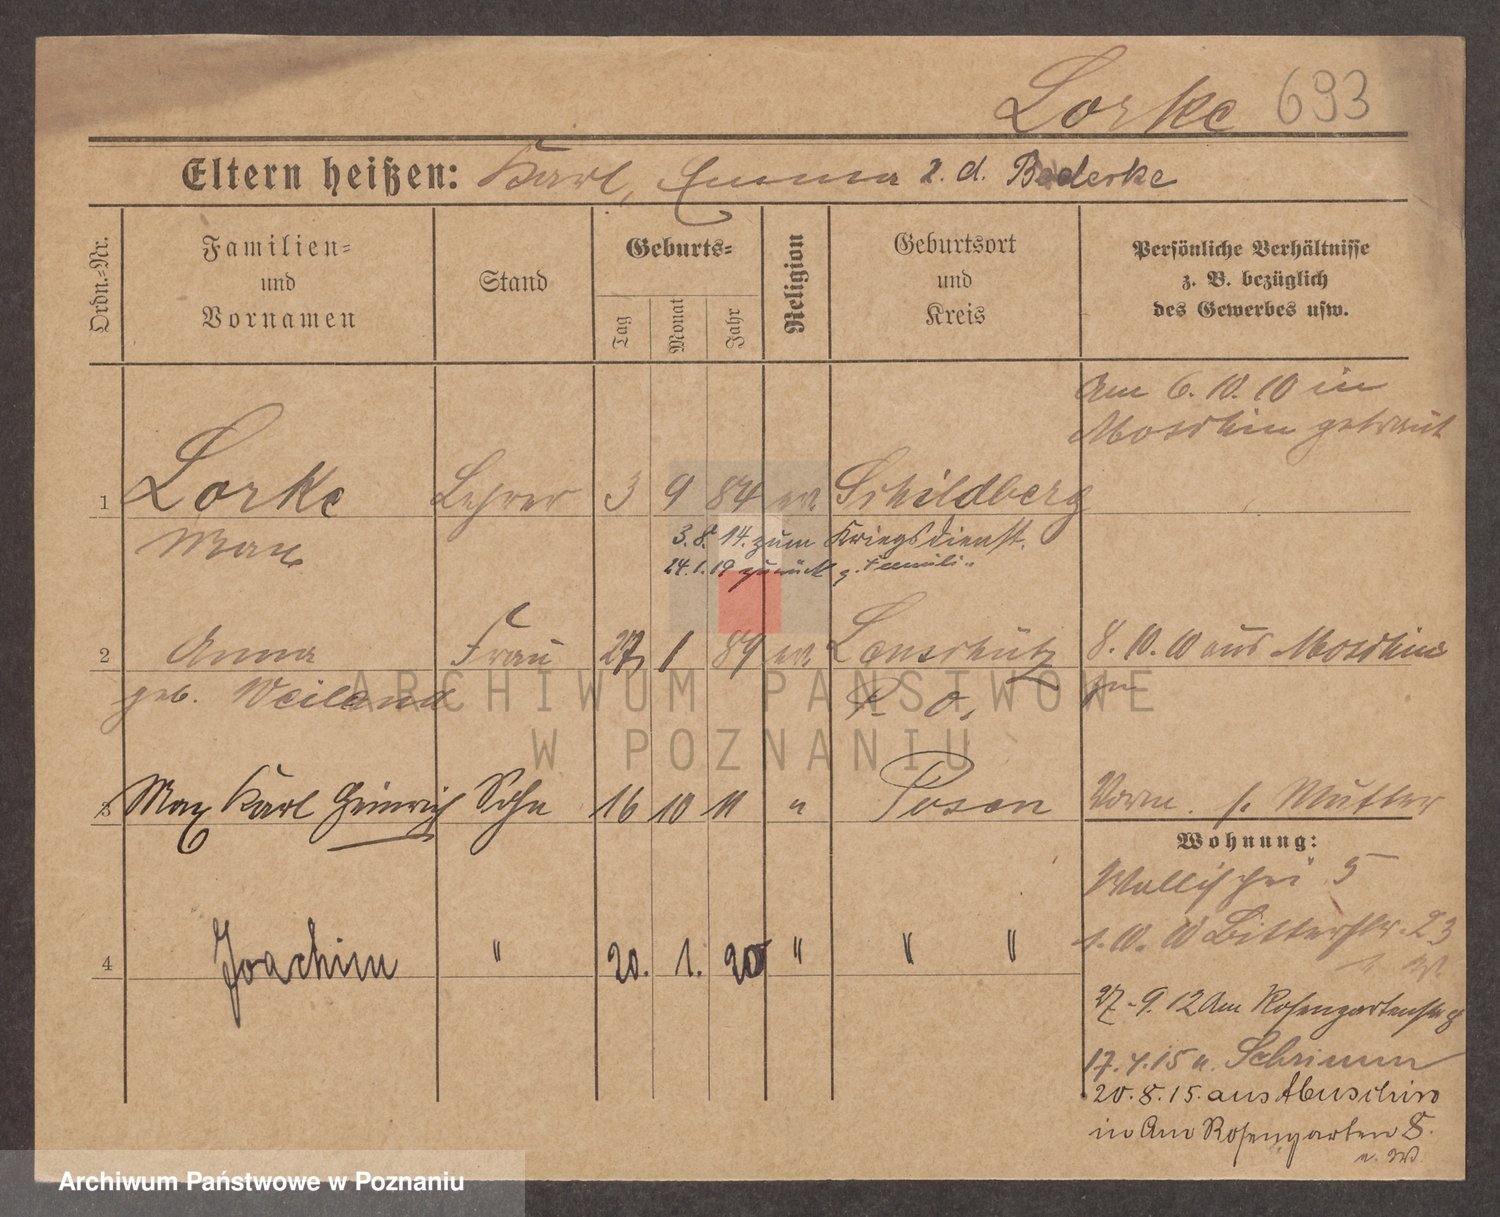 Lorke 693
Eltern heißen: Karl, Emma z. d. Bederke
Ordn.=Nr.
Familien=
und
Vornamen
Stand
Geburts=
Tag
Monat
Jahr
Religion
Geburtsort
und
Kreis
Persönliche Verhältnisse
z. B. bezüglich
des Gewerbes usw.
Am 6. 10. 10 in
Moschin getraut
1 Lorke Lehrer 3 9 84 ev. Schildberg
Max
3. 8. 14. zum Kriegsdienst.
24. 1. 19 zurück z. Familie
2 Anna Frau 27 1 89 ev.
8. 10. 10 aus Moschin
geb. Weiland
P. O.
3 Max Karl Heinrich Sohn 16 10 11 " Posen
Vorm. s. Mutter
Wohnung:
Wallischei 5
1. 10. 10 Bitterstr. 23
4 Joachim " 20. 1. 20 " " "
27. 9. 12 Am Rosengartenstr 8
17. 4. 15 n. Schrimm
20. 8. 15. aus Muschin
in Am Rosengarten 8.
n. W.
ARCHIWUM PAŃSTWOWE
W POZNANIU
Archiwum Państwowe w Poznaniu